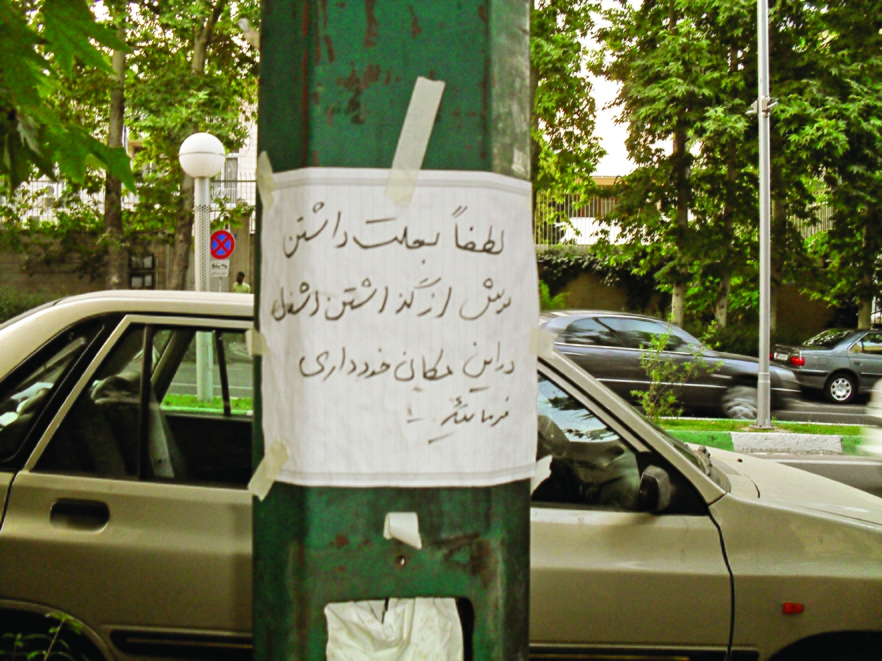 لطفاً بعلت داشتن
مریض از گذاشتن اشغال
در این مکان خودداری
فرمائید